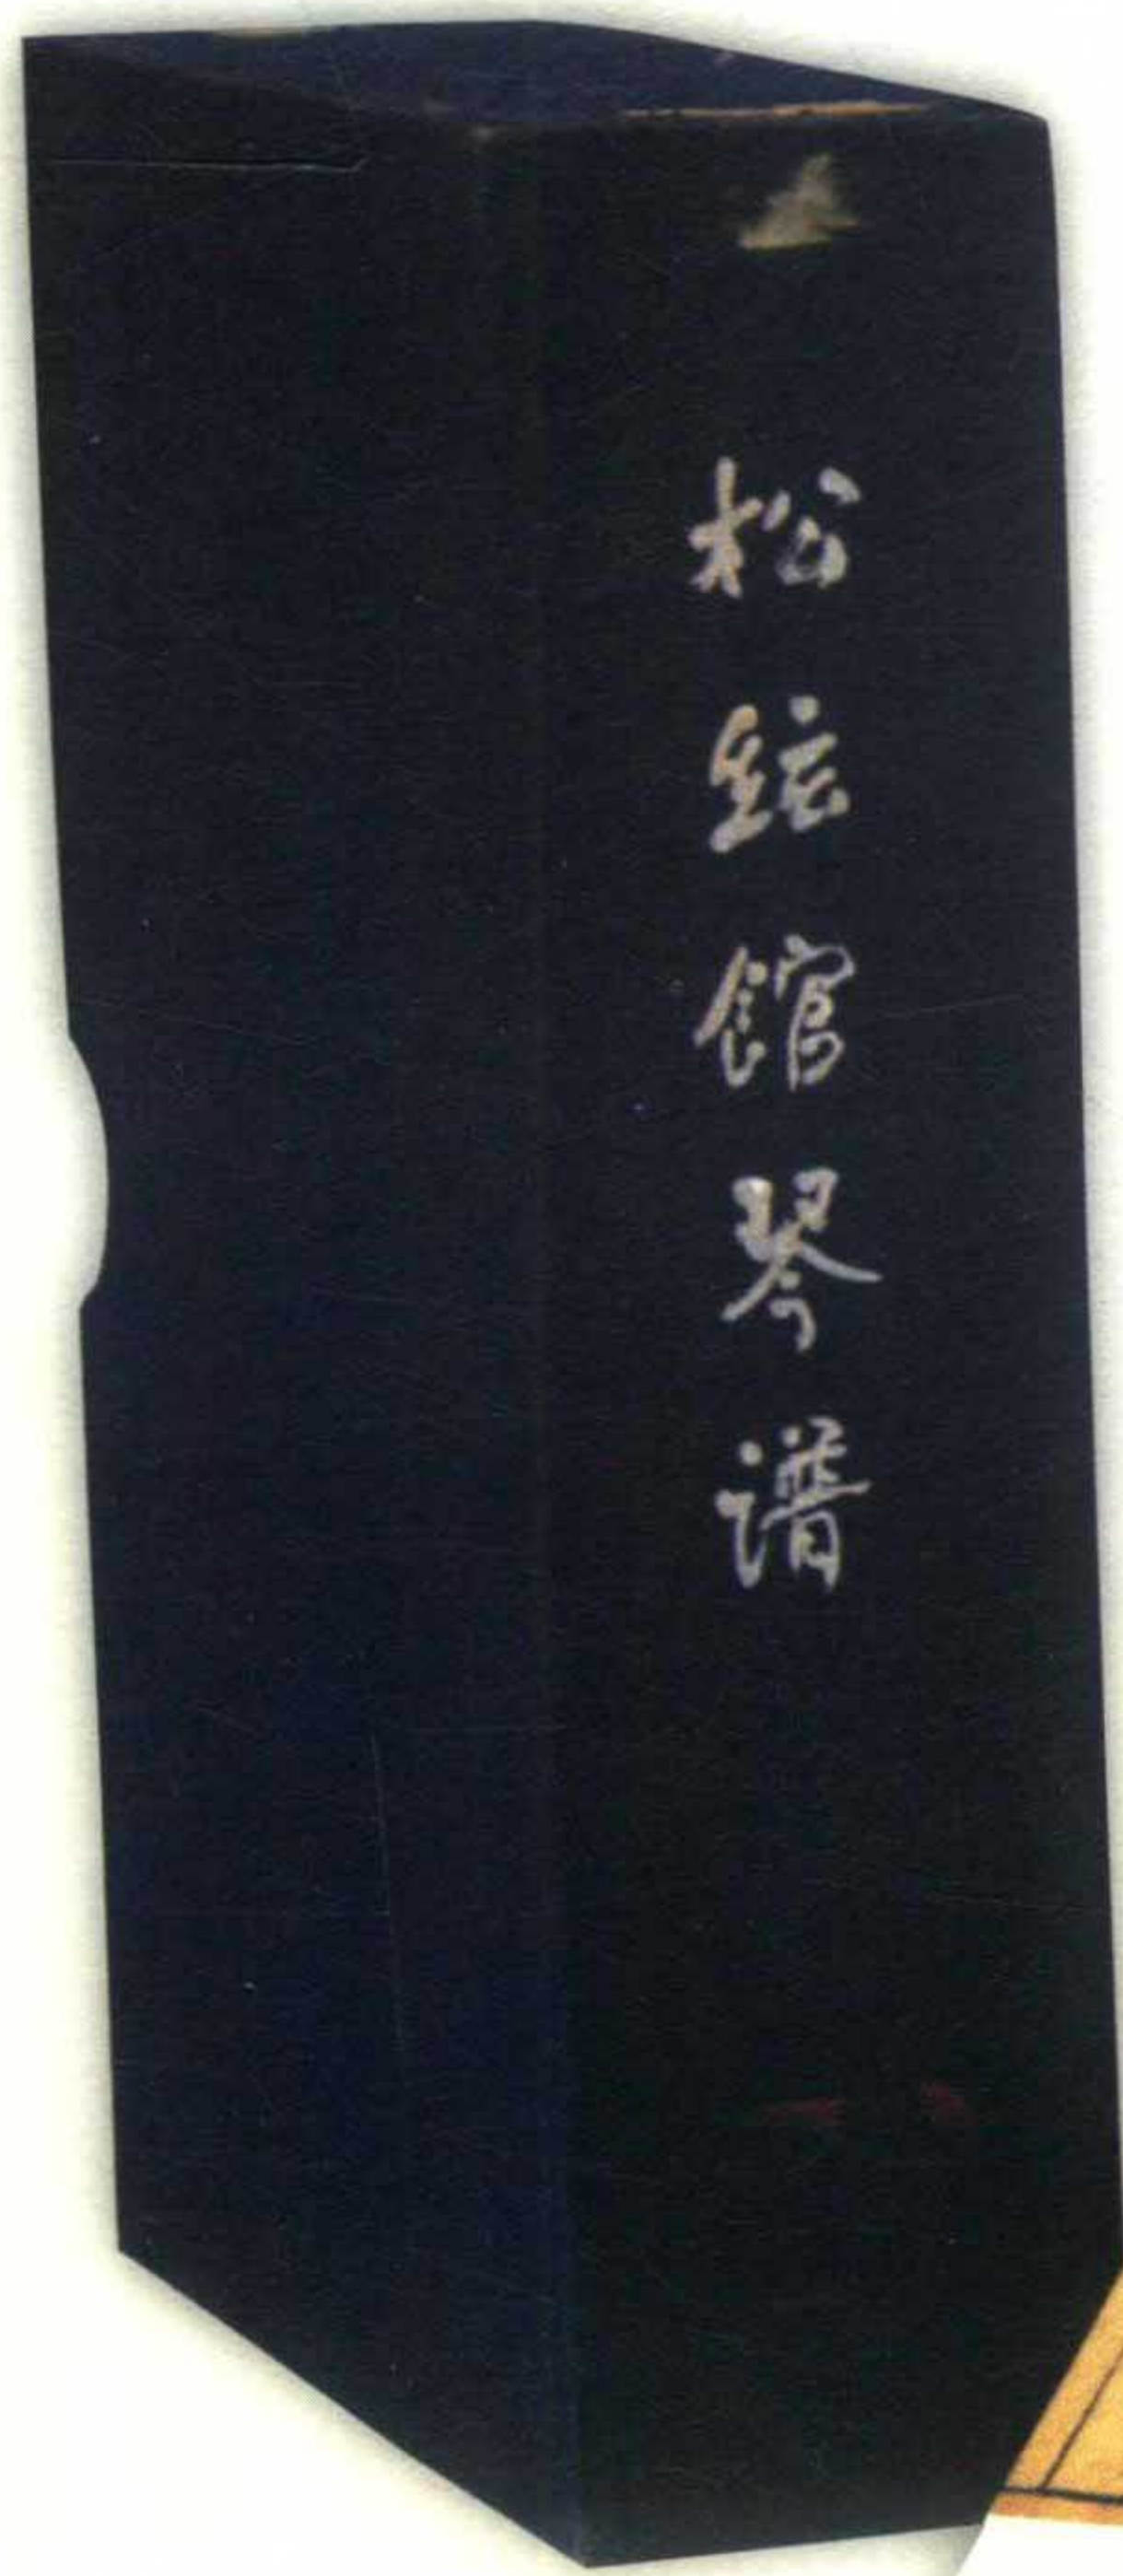 松絃館琴谱